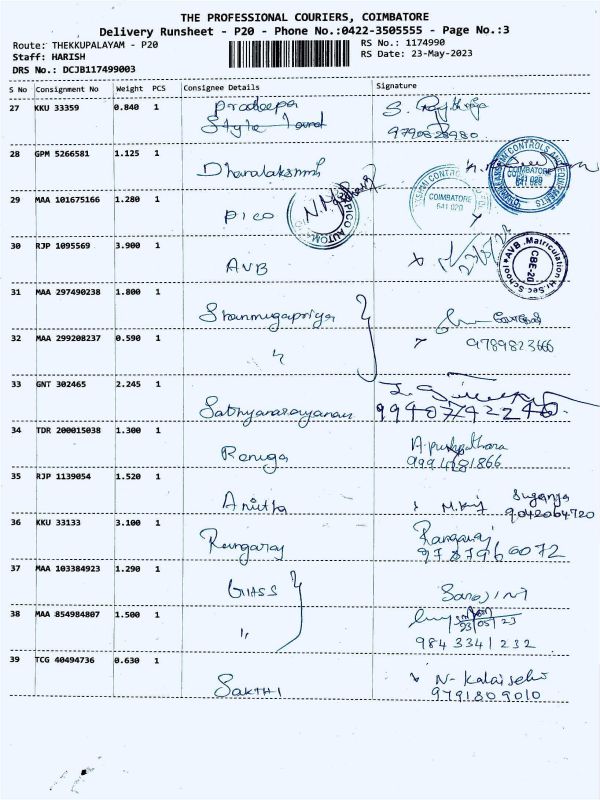 THE PROFESSIONAL COURIERS, COIMBATORE
Delivery Runsheet - P20 - Phone No.:0422-3505555 - Page No.:3
Route: THEKKUPALAYAM - P20
RS No.: 1174990
Staff: HARISH
RS Date: 23-May-2023
DRS No.: DCJB117499003
S No Consignment No Weight PCS Consignee Details Signature
27 KKU 33359 0.840 1 Pradeepa
28 GPM 5266581 1.125 1 Dhanalakshmi
COIMBATORE
641 020
29 MAA 101675166 1.280 1 PICO
PICO AUTOM
COIMBATORE
641 020
30 RJP 1095569 3.900 1 AVB
AVB Matriculation Hr.Sec School
CBE-20
31 MAA 297490238 1.800 1 Shanmugapriya
32 MAA 299208237 0.590 1 "
9789823666
33 GNT 302465 2.245 1 Sathyanarayanan
34 TDR 200015038 1.300 1 Renuga
35 RJP 1139054 1.520 1 Anitha
Suganya
9042064720
36 KKU 33133 3.100 1 Rangaraj Rangaraj
9787960072
37 MAA 103384923 1.290 1 GLASS Sarojini
38 MAA 854984807 1.500 1 "
23/05/23
9843341232
39 TCG 40494736 0.630 1 SAKTHI N- Kalaiselvi
9791809010